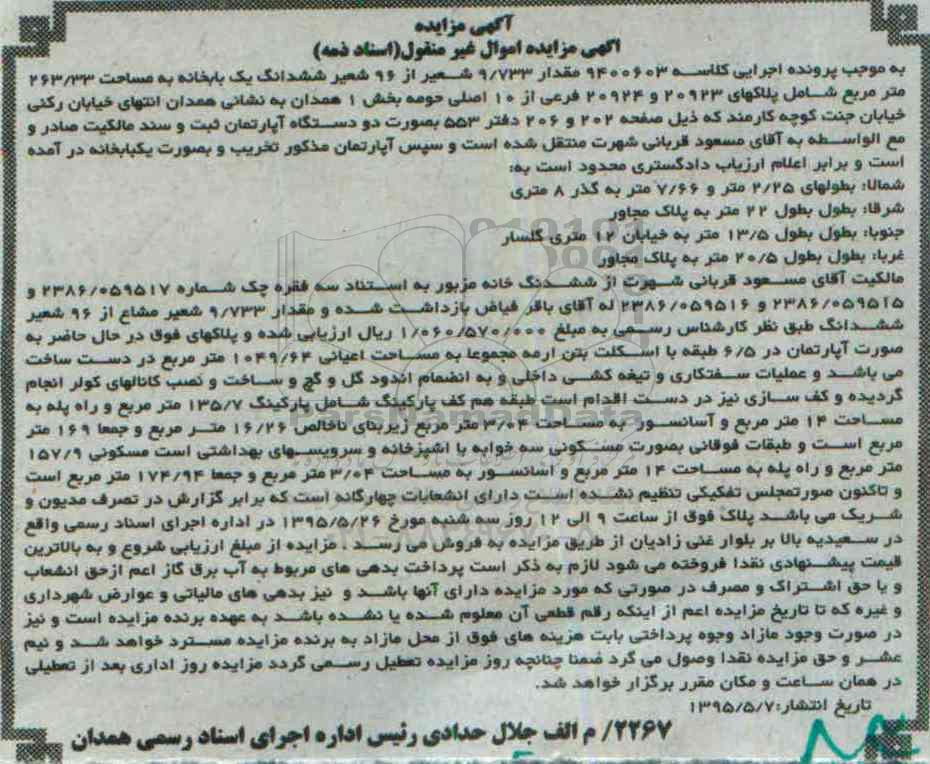 آگهی مزایده
آگهی مزایده اموال غیر منقول(اسناد ذمه)
به موجب پرونده اجرایی کلاسه ۹۴۰۰۶۰۳ مقدار ۹/۷۳۳ شعیر از ۹۶ شعیر ششدانگ یک بابخانه به مساحت ۲۶۳/۳۳
متر مربع شامل پلاکهای ۲۰۹۲۳ و ۲۰۹۲۴ فرعی از ۱۰ اصلی حومه بخش ۱ همدان به نشانی همدان انتهای خیابان رکنی
خیابان جنت کوچه کارمند که ذیل صفحه ۲۰۲ و ۲۰۶ دفتر ۵۵۳ بصورت دو دستگاه آپارتمان ثبت و سند مالکیت صادر و
مع الواسطه به آقای مسعود قربانی شهرت منتقل شده است و سپس آپارتمان مذکور تخریب و بصورت یکبابخانه در آمده
است و برابر اعلام ارزیاب دادگستری محدود است به:
شمالا: بطولهای ۲/۲۵ متر و ۷/۶۶ متر به گذر ۸ متری
شرقا: بطول بطول ۲۲ متر به پلاک مجاور
جنوبا: بطول بطول ۱۳/۵ متر به خیابان ۱۲ متری گلسار
غربا: بطول بطول ۲۰/۵ متر به پلاک مجاور
مالکیت آقای مسعود قربانی شهرت از ششدنگ خانه مزبور به استناد سه فقره چک شماره ۲۳۸۶/۰۵۹۵۱۷ و
۲۳۸۶/۰۵۹۵۱۵ و ۲۳۸۶/۰۵۹۵۱۶ له آقای باقر فیاض بازداشت شده و مقدار ۹/۷۳۳ شعیر مشاع از ۹۶ شعیر
ششدانگ طبق نظر کارشناس رسمی به مبلغ ۱/۰۶۰/۵۷۰/۰۰۰ ریال ارزیابی شده و پلاکهای فوق در حال حاضر به
صورت آپارتمان در ۶/۵ طبقه با اسکلت بتن ارمه مجموعا به مساحت اعیانی ۱۰۴۹/۶۴ متر مربع در دست ساخت
می باشد و عملیات سفتکاری و تیغه کشی داخلی و به انضمام اندود گل و گچ و ساخت و نصب کانالهای کولر انجام
گردیده و کف سازی نیز در دست اقدام است طبقه هم کف پارکینگ شامل پارکینگ ۱۳۵/۷ متر مربع و راه پله به
مساحت ۱۴ متر مربع و آسانسور به مساحت ۳/۰۴ متر مربع زیربنای ناخالص ۱۶/۲۶ متر مربع و جمعا ۱۶۹ متر
مربع است و طبقات فوقانی بصورت مسکونی سه خوابه با اشپزخانه و سرویسهای بهداشتی است مسکونی ۱۵۷/۹
متر مربع و راه پله به مساحت ۱۴ متر مربع و آسانسور به مساحت ۳/۰۴ متر مربع و جمعا ۱۷۴/۹۴ متر مربع است
و تاکنون صورتمجلس تفکیکی تنظیم نشده است دارای انشعابات چهارگانه است که برابر گزارش در تصرف مدیون و
شریک می باشد پلاک فوق از ساعت ۹ الی ۱۲ روز سه شنبه مورخ ۱۳۹۵/۵/۲۶ در اداره اجرای اسناد رسمی واقع
در سعیدیه بالا بر بلوار غنی زادیان از طریق مزایده به فروش می رسد . مزایده از مبلغ ارزیابی شروع و به بالاترین
قیمت پیشنهادی نقدا فروخته می شود لازم به ذکر است پرداخت بدهی های مربوط به آب برق گاز اعم ازحق انشعاب
و یا حق اشتراک و مصرف در صورتی که مورد مزایده دارای آنها باشد و نیز بدهی های مالیاتی و عوارض شهرداری
و غیره که تا تاریخ مزایده اعم از اینکه رقم قطعی آن معلوم شده یا نشده باشد به عهده برنده مزایده است و نیز
در صورت وجود مازاد وجوه پرداختی بابت هزینه های فوق از محل مازاد به برنده مزایده مسترد خواهد شد و نیم
عشر و حق مزایده نقدا وصول می گرد ضمنا چنانچه روز مزایده تعطیل رسمی گردد مزایده روز اداری بعد از تعطیلی
در همان ساعت و مکان مقرر برگزار خواهد شد.
تاریخ انتشار:۱۳۹۵/۵/۷
۲۲۶۷/ م الف جلال حدادی رئیس اداره اجرای اسناد رسمی همدان
ParsNamadData